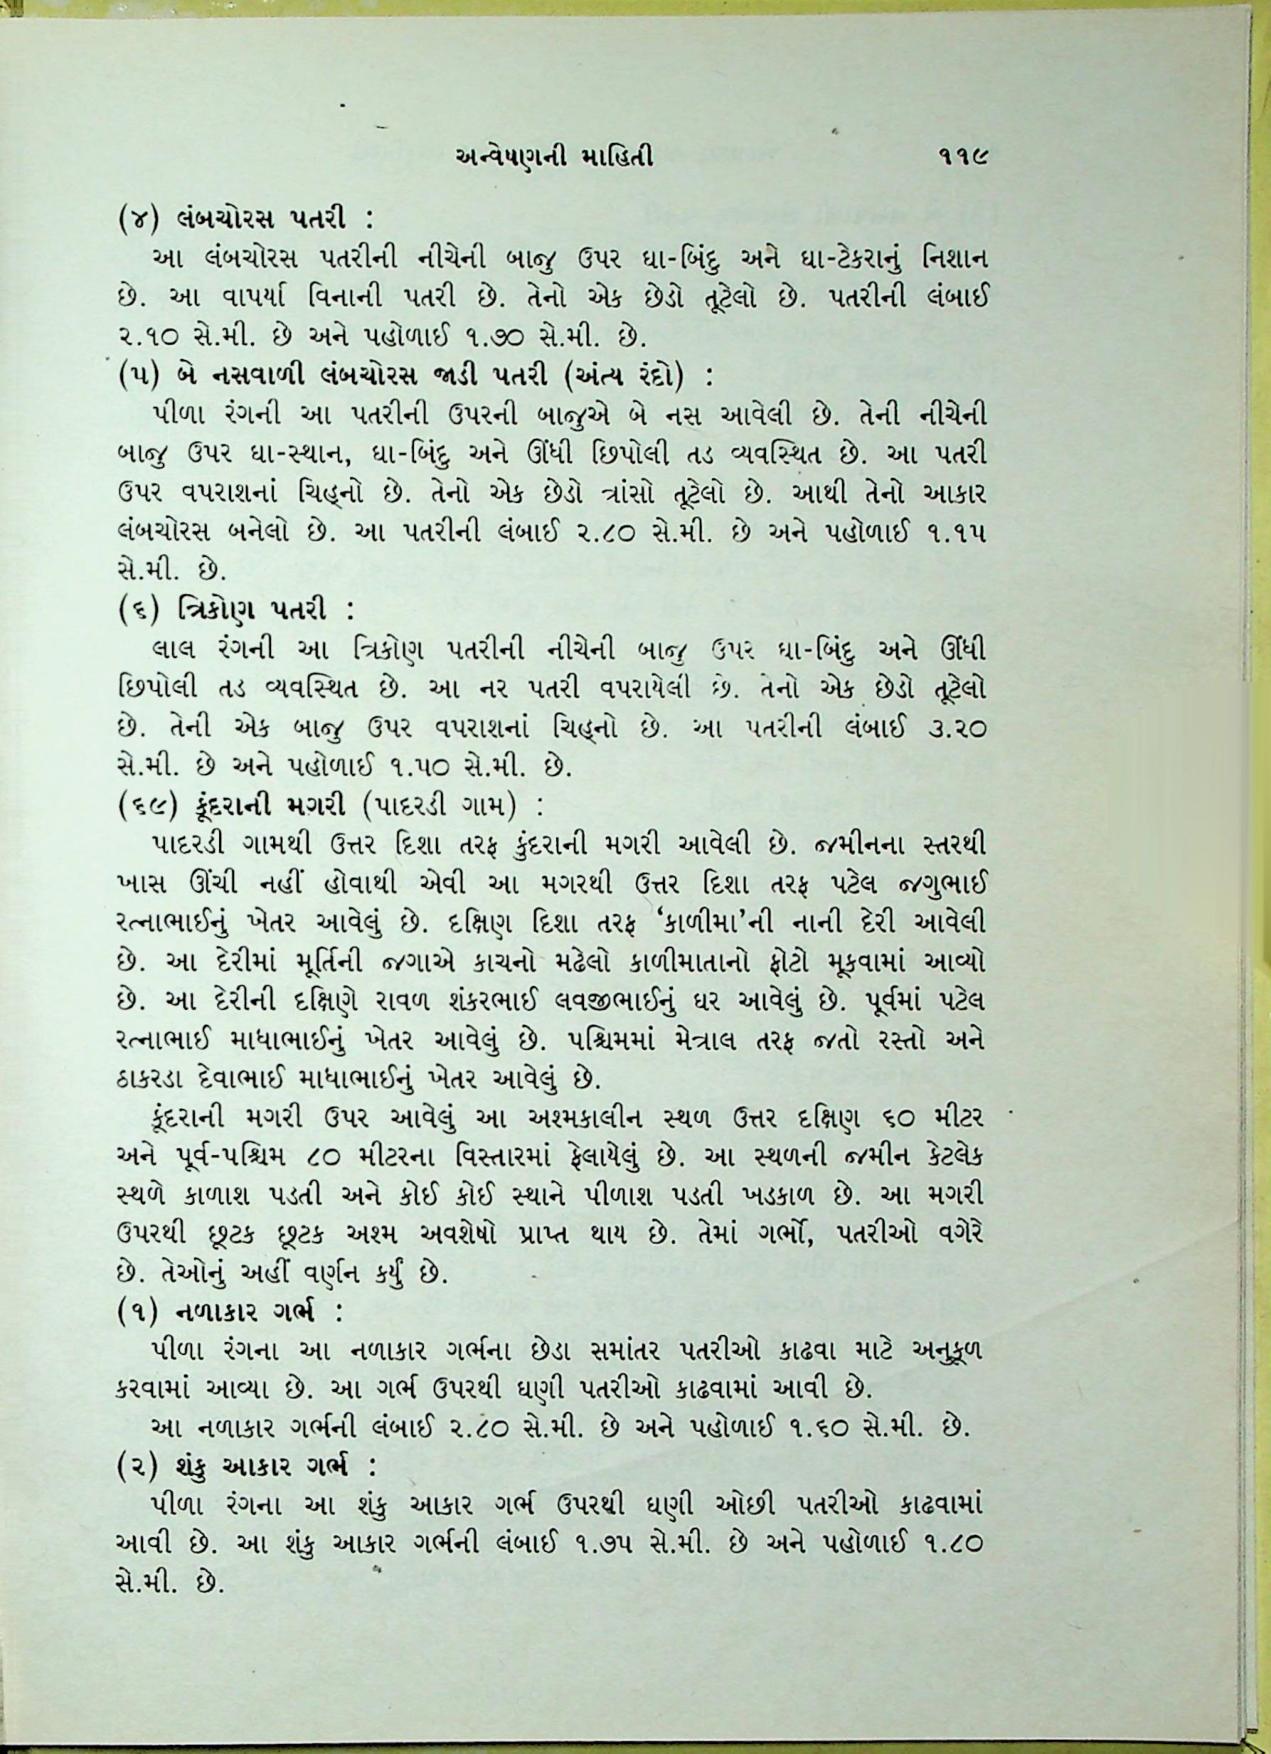 અન્વેષણની માહિતી ૧૧૯
(૪) લંબચોરસ પતરી :
આ લંબચોરસ પતરીની નીચેની બાજુ ઉપર ઘા-બિંદુ અને ઘા-ટેકરાનું નિશાન
છે. આ વાપર્યા વિનાની પતરી છે. તેનો એક છેડો તૂટેલો છે. પતરીની લંબાઈ
૨.૧૦ સે.મી. છે અને પહોળાઈ ૧.૭૦ સે.મી. છે.
(૫) બે નસવાળી લંબચોરસ જાડી પતરી (અંત્ય રંદો) :
પીળા રંગની આ પતરીની ઉપરની બાજુએ બે નસ આવેલી છે. તેની નીચેની
બાજુ ઉપર ઘા-સ્થાન, ઘા-બિંદુ અને ઊંધી છિપોલી તડ વ્યવસ્થિત છે. આ પતરી
ઉપર વપરાશનાં ચિહ્નો છે. તેનો એક છેડો ત્રાંસો તૂટેલો છે. આથી તેનો આકાર
લંબચોરસ બનેલો છે. આ પતરીની લંબાઈ ૨.૮૦ સે.મી. છે અને પહોળાઈ ૧.૧૫
સે.મી. છે.
(૬) ત્રિકોણ પતરી :
લાલ રંગની આ ત્રિકોણ પતરીની નીચેની બાજુ ઉપર ઘા-બિંદુ અને ઊંધી
છિપોલી તડ વ્યવસ્થિત છે. આ નર પતરી વપરાયેલી છે. તેનો એક છેડો તૂટેલો
છે. તેની એક બાજુ ઉપર વપરાશનાં ચિહ્નો છે. આ પતરીની લંબાઈ ૩.૨૦
સે.મી. છે અને પહોળાઈ ૧.૫૦ સે.મી. છે.
(૬૯) કૂંદરાની મગરી (પાદરડી ગામ) :
પાદરડી ગામથી ઉત્તર દિશા તરફ કુંદરાની મગરી આવેલી છે. જમીનના સ્તરથી
ખાસ ઊંચી નહીં હોવાથી એવી આ મગરથી ઉત્તર દિશા તરફ પટેલ જગુભાઈ
રત્નાભાઈનું ખેતર આવેલું છે. દક્ષિણ દિશા તરફ ‘કાળીમા’ની નાની દેરી આવેલી
છે. આ દેરીમાં મૂર્તિની જગાએ કાચનો મઢેલો કાળીમાતાનો ફોટો મૂકવામાં આવ્યો
છે. આ દેરીની દક્ષિણે રાવળ શંકરભાઈ લવજીભાઈનું ઘર આવેલું છે. પૂર્વમાં પટેલ
રત્નાભાઈ માધાભાઈનું ખેતર આવેલું છે. પશ્ચિમમાં મેત્રાલ તરફ જતો રસ્તો અને
ઠાકરડા દેવાભાઈ માધાભાઈનું ખેતર આવેલું છે.
કૂંદરાની મગરી ઉપર આવેલું આ અશ્મકાલીન સ્થળ ઉત્તર દક્ષિણ ૬૦ મીટર
અને પૂર્વ-પશ્ચિમ ૮૦ મીટરના વિસ્તારમાં ફેલાયેલું છે. આ સ્થળની જમીન કેટલેક
સ્થળે કાળાશ પડતી અને કોઈ કોઈ સ્થાને પીળાશ પડતી ખડકાળ છે. આ મગરી
ઉપરથી છૂટક છૂટક અશ્મ અવશેષો પ્રાપ્ત થાય છે. તેમાં ગર્ભો, પતરીઓ વગેરે
છે. તેઓનું અહીં વર્ણન કર્યું છે.
(૧) નળાકાર ગર્ભ :
પીળા રંગના આ નળાકાર ગર્ભના છેડા સમાંતર પતરીઓ કાઢવા માટે અનુકૂળ
કરવામાં આવ્યા છે. આ ગર્ભ ઉપરથી ઘણી પતરીઓ કાઢવામાં આવી છે.
આ નળાકાર ગર્ભની લંબાઈ ૨.૮૦ સે.મી. છે અને પહોળાઈ ૧.૬૦ સે.મી. છે.
(૨) શંકુ આકાર ગર્ભ :
પીળા રંગના આ શંકુ આકાર ગર્ભ ઉપરથી ઘણી ઓછી પતરીઓ કાઢવામાં
આવી છે. આ શંકુ આકાર ગર્ભની લંબાઈ ૧.૭૫ સે.મી. છે અને પહોળાઈ ૧.૮૦
સે.મી. છે.